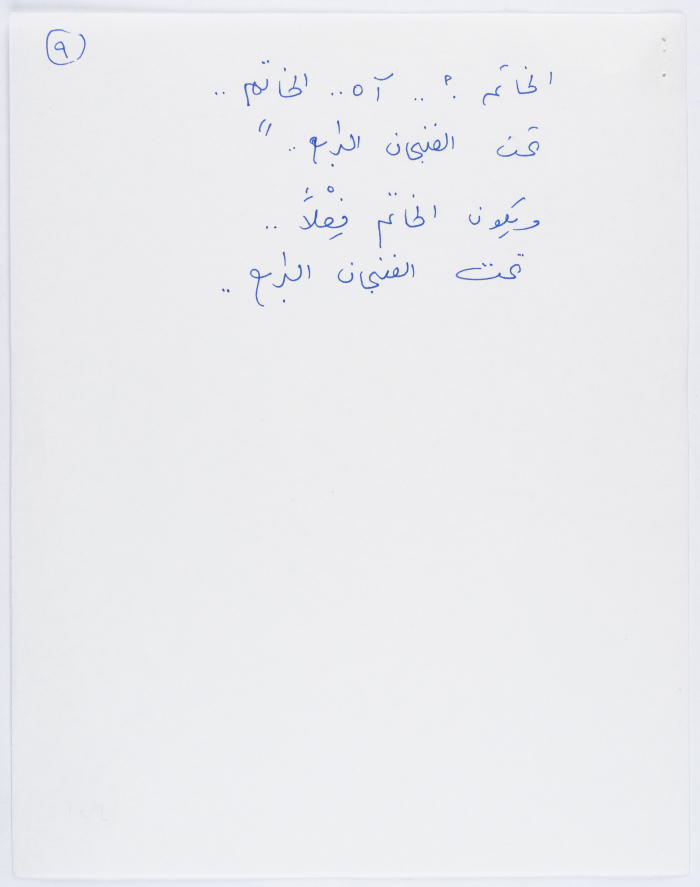 ٩
الخاتم ؟ .. آه .. الخاتم ..
تحت الفنجان الرابع .. "
ويكون الخاتم فِعْلاً ..
تحت الفنجان الرابع ..